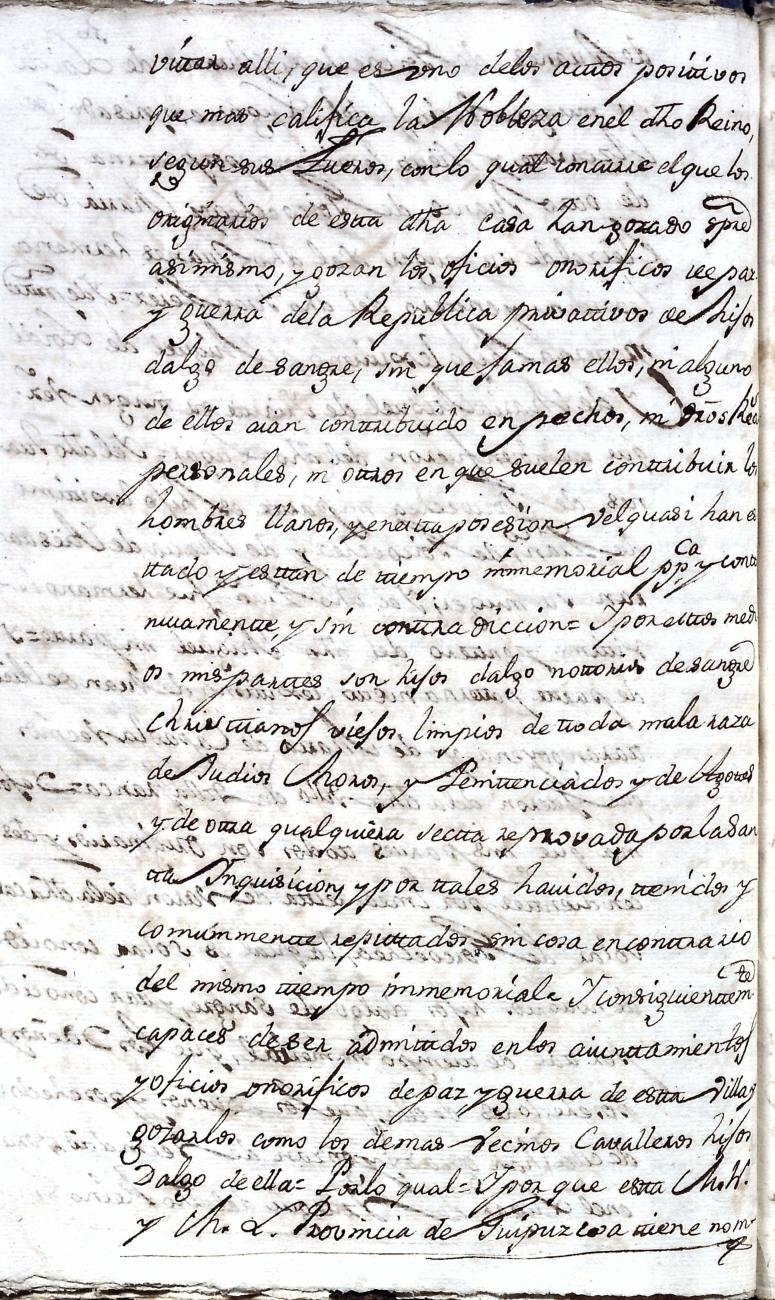 vittar alli, que es vno delos acttos posittivos
que mas califica la Nobleza enel dho Reino,
segun sus Fueros, con lo qual concurre el que los
originarios de estta dha casa han gozado spre
asimismo, y gozan los oficios onorificos de paz
y guerra dela Republica privattivos de hijos
dalgo de sangre, sin que jamas ellos, ni alguno
de ellos aian conttribuido en pechos, ni dros Rea
personales, ni ottros en que suelen conttribuir los
hombres llanos, y enestta posesion, velquasi han es
ttado y esttàn de ttiempo immemorial ppca y contti
nuamentte, y sin conttradiccion = Y por esttos medi
os mis parttes son hijos dalgo nottorios de sangre
Christtianos viejos limpios de ttoda mala raza
de Judios Moros, y Penittenciados y de Agotes
y de ottra qualquiera sectta reprovada por la San
tta Inquisicion, y por ttales havidos, ttenidos y
comunmentte reputtados sin cosa en conttrario
del mismo ttiempo immemorial = Y consiguienttemte
capaces de ser admittidos en los aiunttamienttos
y oficios onorificos de paz, y guerra de estta Villa, y
gozarlos como los demas Vecinos Cavalleros hijos
Dalgo de ella = Por lo qual = Y por que estta M. N.
y M. L. Provincia de Guipuzcoa ttiene nom